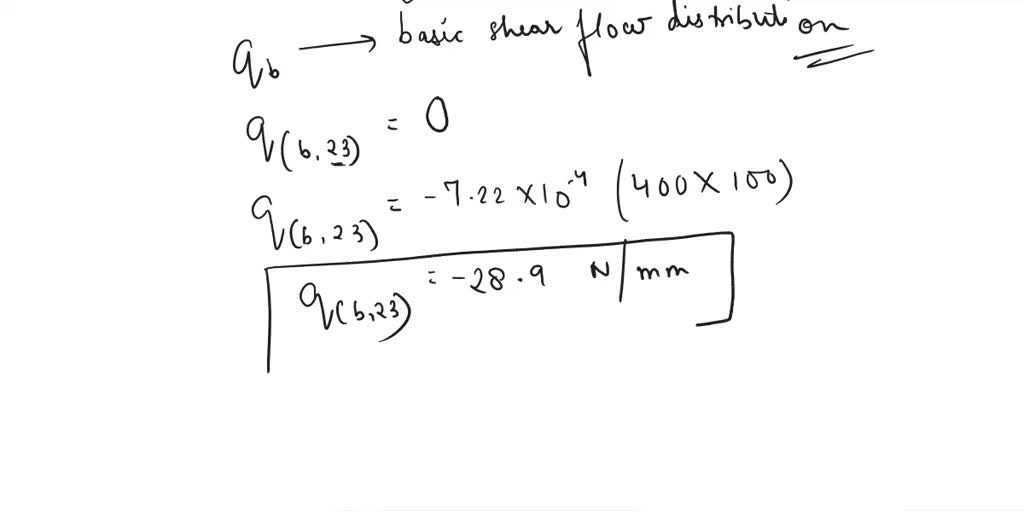 q_b → basic shear flow distribution
q_(b,23) = 0
q_(b,23) = -7.22 × 10^-4 (400 × 100)
q_(b,23) = -28.9 N/mm